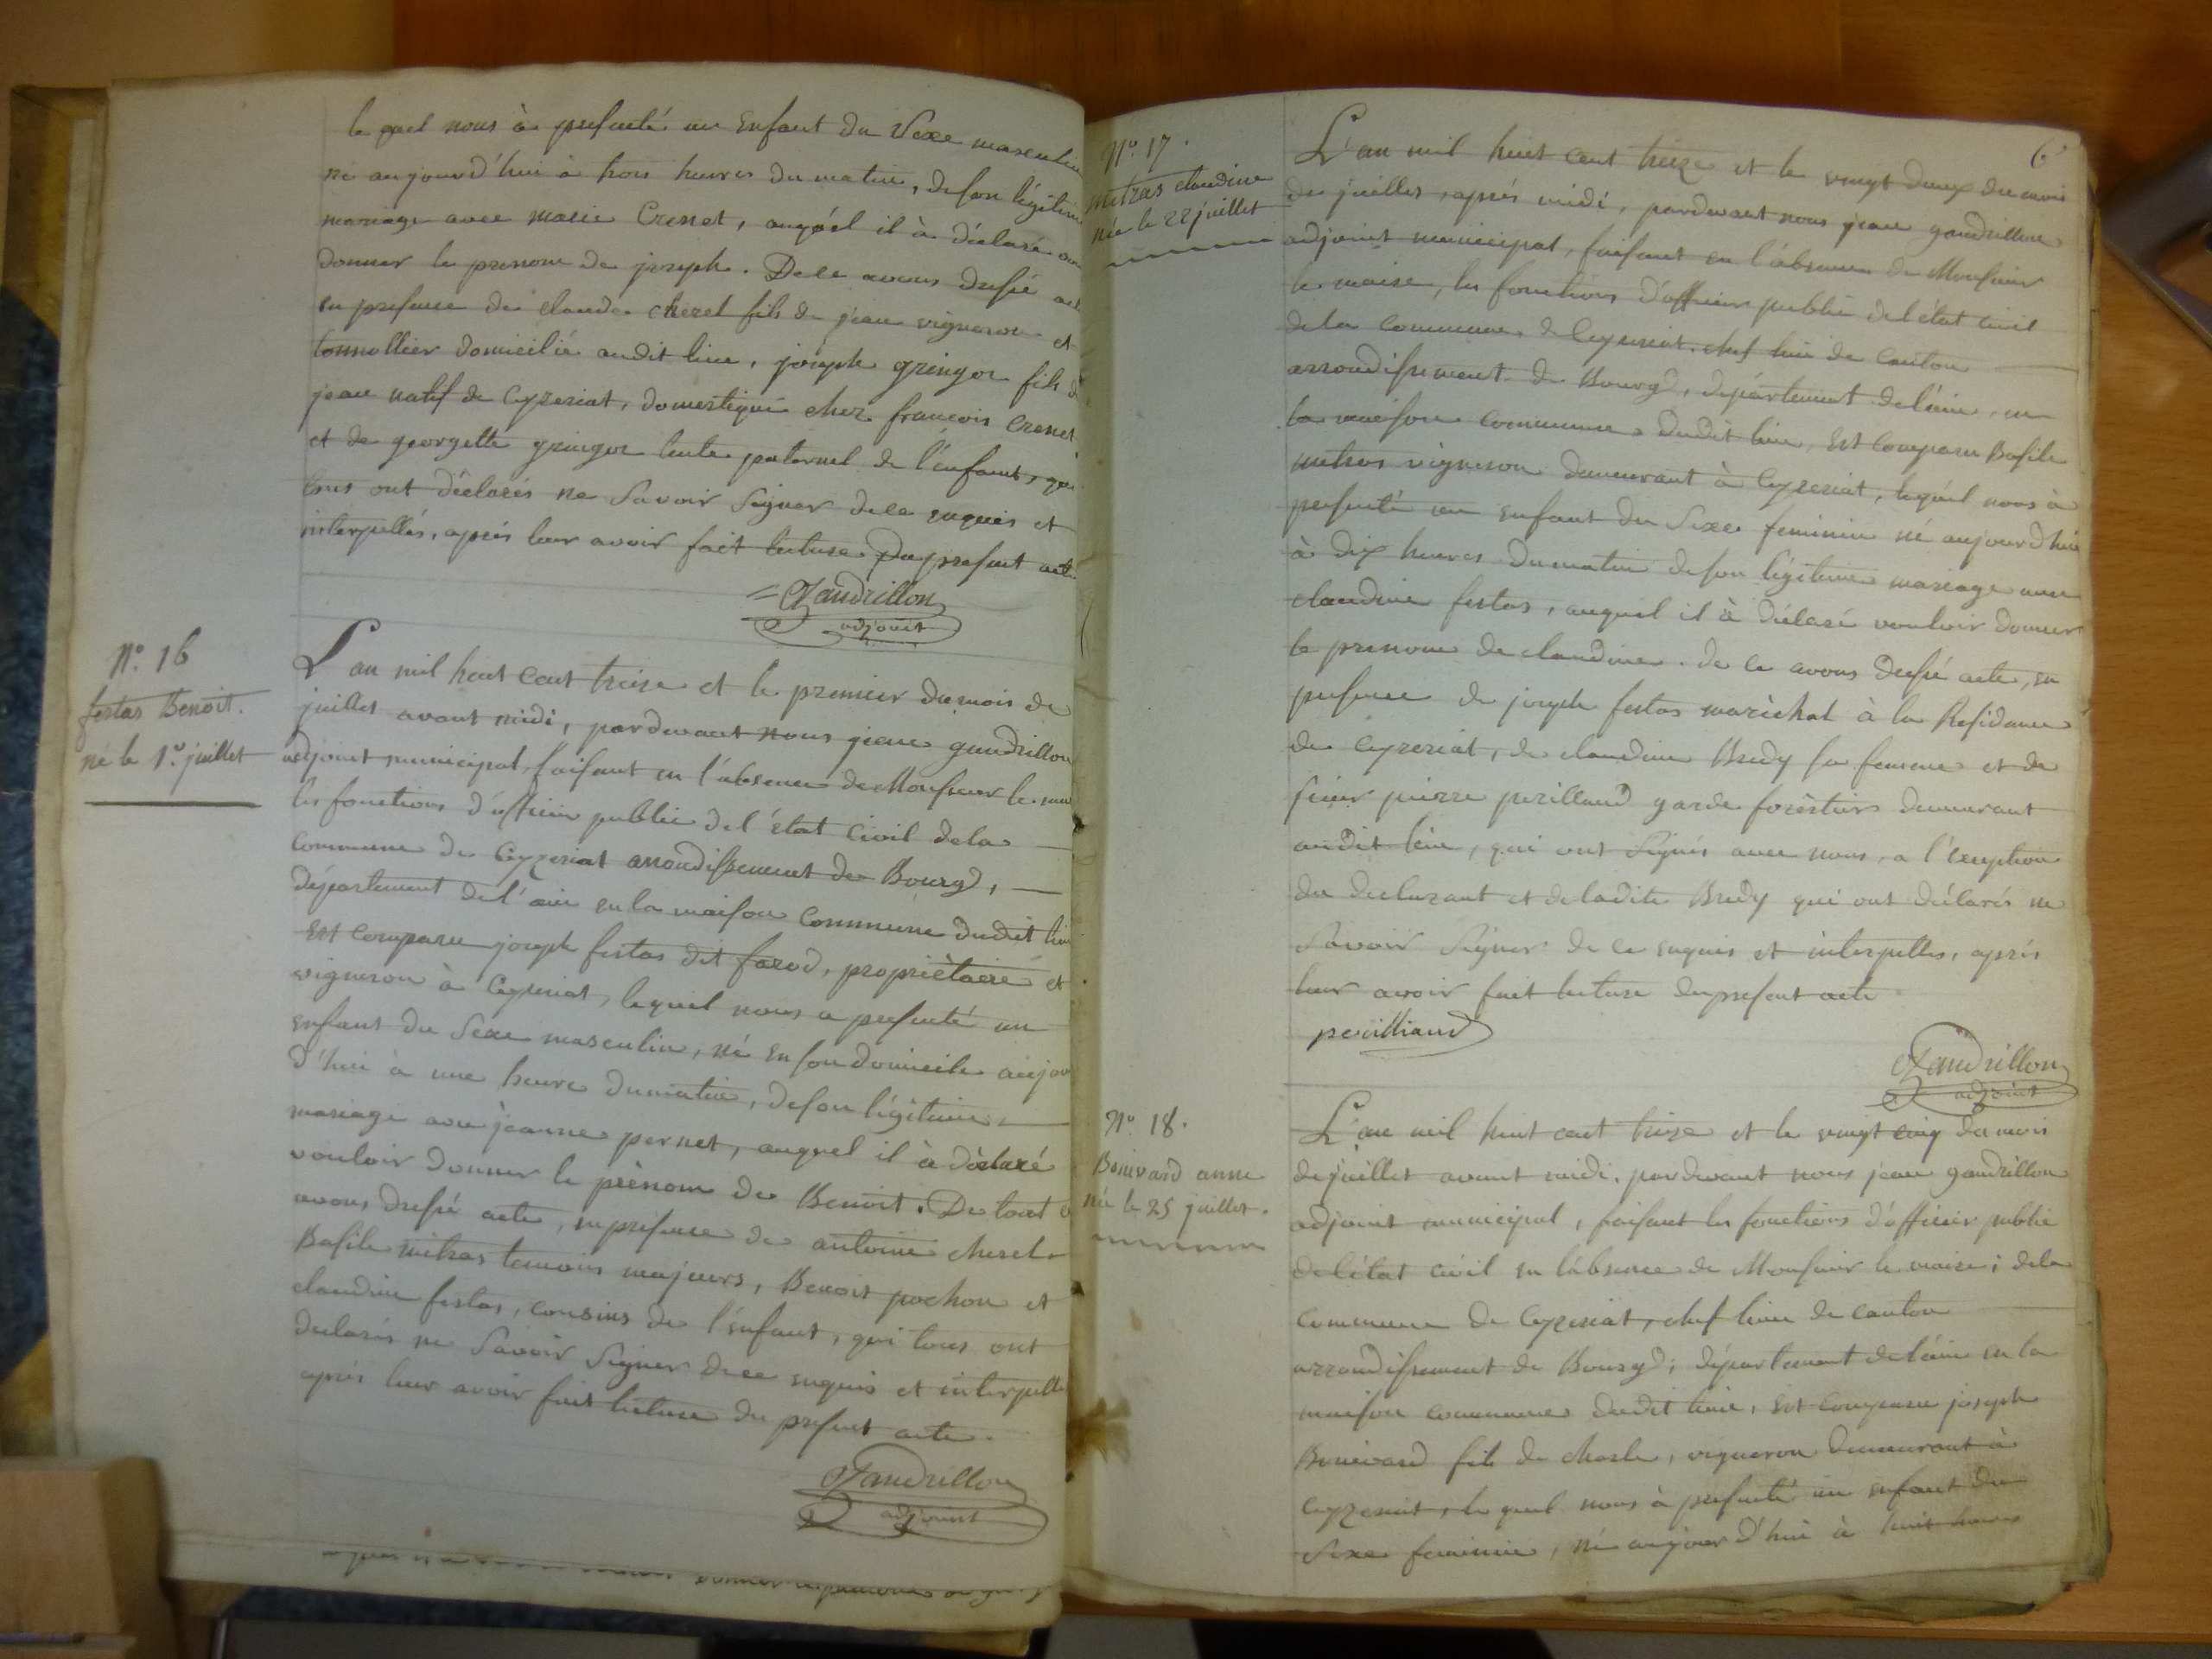 le quel nous à presenté un Enfant du Sexe masculin
né aujourd'hui à trois heures du matin, de son légitime
mariage avec marie Crenet, auquel il à déclaré
donner le prenom de joseph. De ce avons dressé acte
en presence de claude cherel fils de jean vigneron et
tonnellier domicilié audit lieu, joseph gringoz fils de
jean natif de Ceyzeriat, domestique chez françois Crenet
et de georgette gringoz tente paternel de l'enfant, qui
tous ont déclarés ne Savoir Signer de ce enquis et
interpellés, après leur avoir fait lecture du present acte
Gaudrillon
adjoint
N.º 16
festas Benoit.
né le 1.er juillet
L'an mil huit cent treize et le premier du mois de
juillet avant midi, pardevant nous jean gaudrillon
adjoint municipal, faisant en l'absence de Monsieur le
les fonctions d'officier public de l'état Civil de la
Commune de Ceyzeriat arrondissement de Bourg,
département de l'ain en la maison commune dudit lieu
Est comparu joseph festas dit farod, propriètaire et
vigneron à Ceyzeriat, lequel nous a presenté un
enfant du Sexe masculin, né en son domicile aujour
d'hui à une heure du matin, de son légitime
mariage avec jeanne pernet, auquel il à déclaré
vouloir donner le prénom de Benoit. De tout
avons dressé acte, en presence de antoine cherel
Basile mitras temoins majeurs, Benoit pochon et
claudine festas, cousins de l'enfant, qui tous ont
declarés ne Savoir Signer de ce enquis et interpellé
après leur avoir fait lecture du present acte.
Gaudrillon
adjoint
6
N.º 17.
mitras claudine
née le 22 juillet
L'an mil huit cent treize et le vingt deux du mois
de juillet, après midi, pardevant nous jean gaudrillon
adjoint municipal, faisant en l'absence de Monsieur
le maire, les fonctions d'officier public de l'état civil
de la commune de Ceyzeriat, chef lieu de canton
arrondissement de Bourg, département de l'ain, en
la maison commune dudit lieu, Est comparu Basile
mitras vigneron demeurant à Ceyzeriat, lequel nous à
presenté un enfant du Sexe feminin né aujourd'hui
à dix heures du matin de son légitime mariage avec
claudine festas, auquel il à déclaré vouloir donner
le prenom de claudine. de ce avons dressé acte, en
presence de joseph festas marèchal à la Residance
de Ceyzeriat, de claudine Bredy sa femme et de
sieur pierre perilliaud garde forêstier demeurant
audit lieu, qui ont Signés avec nous, a l'exception
du declarant et de ladite Bredy qui ont déclarés ne
Savoir Signer de ce enquis et interpellés, après
leur avoir fait lecture du present acte
perilliaud
Gaudrillon
adjoint
N.º 18.
Bonivard anne
née le 25 juillet.
L'an mil huit cent treize et le vingt cinq du mois
de juillet avant midi, pardevant nous jean gaudrillon
adjoint municipal, faisant les fonctions d'officier public
de l'état civil en l'absence de Monsieur le maire; de la
commune de Ceyzeriat, chef lieu de canton
arrondissement de Bourg; département de l'ain en la
maison commune dudit lieu, Est comparu joseph
Bonivard fils de charle, vigneron demeurant à
Ceyzeriat, le quel nous à presenté un enfant du
Sexe feminin, né aujour d'hui à huit heures